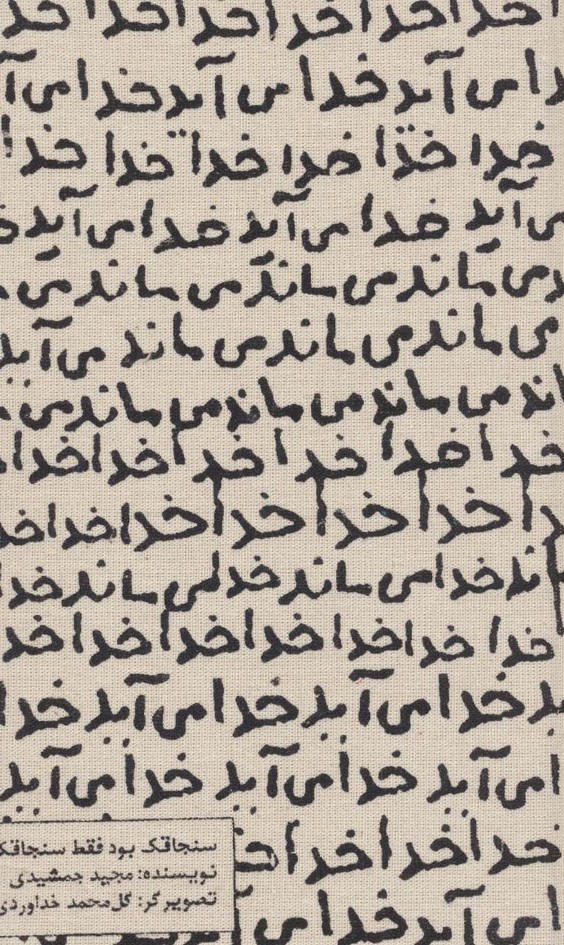 خدا خدا خدا خدا خدا خدا خدا
دا می آید خدا می آید خدا می آ
خدا خدا خدا خدا خدا خدا
می آید خدا می آید خدا می آید
می ماند می ماند می ماند می
می ماند می ماند می ماند می آید
ماند می ماند می ماند می ماند می
خدا خدا خدا خدا خدا خدا
خدا خدا خدا خدا خدا
خدا می ماند خدا می ماند خدا
خدا خدا خدا خدا خدا خدا خدا
ید خدا می آید خدا می آید خدا
می آید خدا می آید خدا می آید
خدا خدا خدا خدا
می آید خدا می
سنجاقک بود فقط سنجاقک
نویسنده: مجید جمشیدی
تصویرگر: گل‌محمد خداوردی